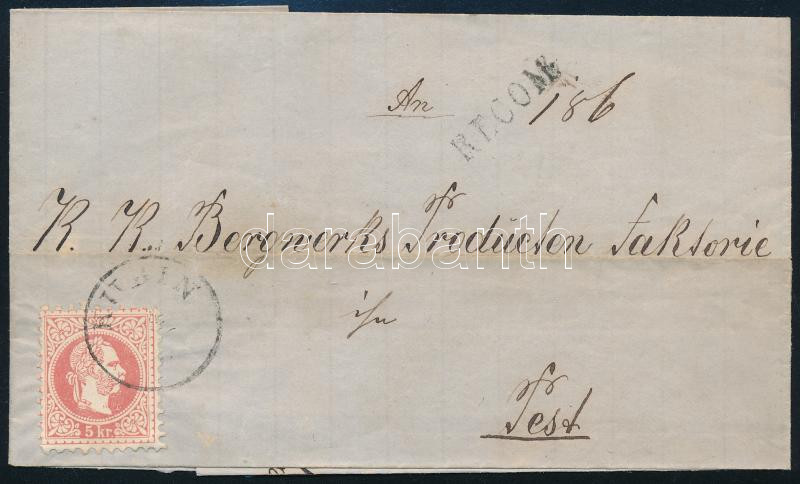 RECOM
An 186
K. K. Bergwerks Producten Faktorie
darabanth
in
Pest
5 kr